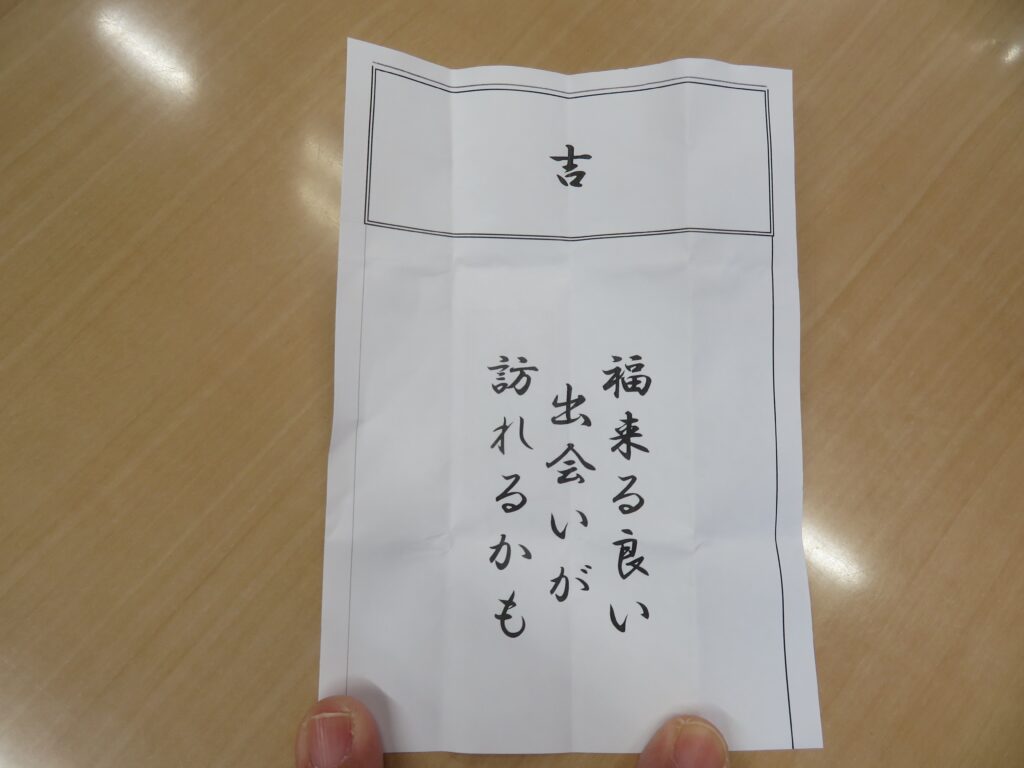 吉
福来る良い
出会いが
訪れるかも